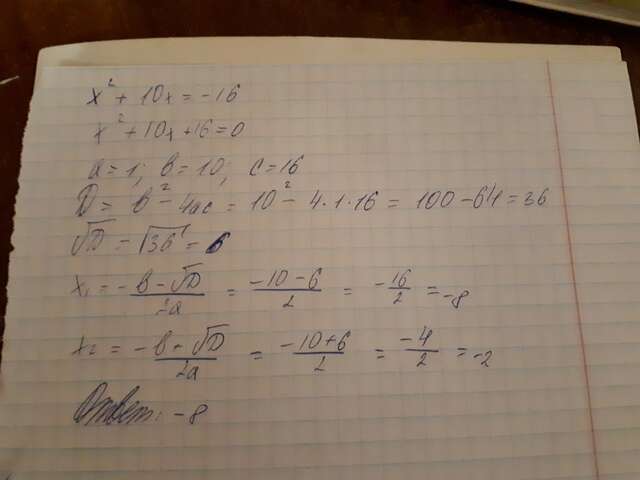 x² + 10x = -16
x² + 10x + 16 = 0
a = 1; b = 10; c = 16
D = b² - 4ac = 10² - 4·1·16 = 100 - 64 = 36
√D = √36 = 6
x₁ = (-b - √D)/2a = (-10 - 6)/2 = -16/2 = -8
x₂ = (-b + √D)/2a = (-10 + 6)/2 = -4/2 = -2
Ответ: -8